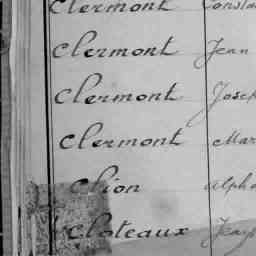 Clermont Consta
Clermont Jean
Clermont Josep
Clermont Mar
Chion Alpho
Cloteaux